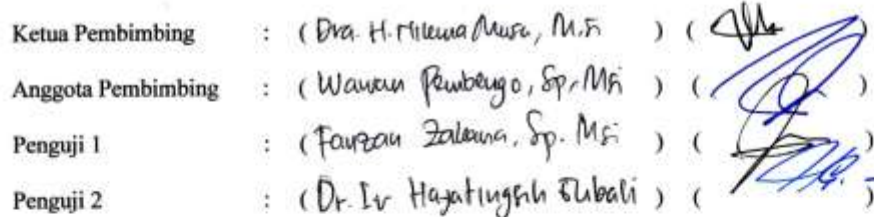 Ketua Pembimbing : ( Dra. H. Nilema Musa, M.Si ) ( )
Anggota Pembimbing : ( Wawan Pembengo, Sp, Msi ) ( )
Penguji 1 : ( Fauzan Zakaria, Sp. Msi ) ( )
Penguji 2 : ( Dr. Ir Hayatiningsih Gubali ) ( )